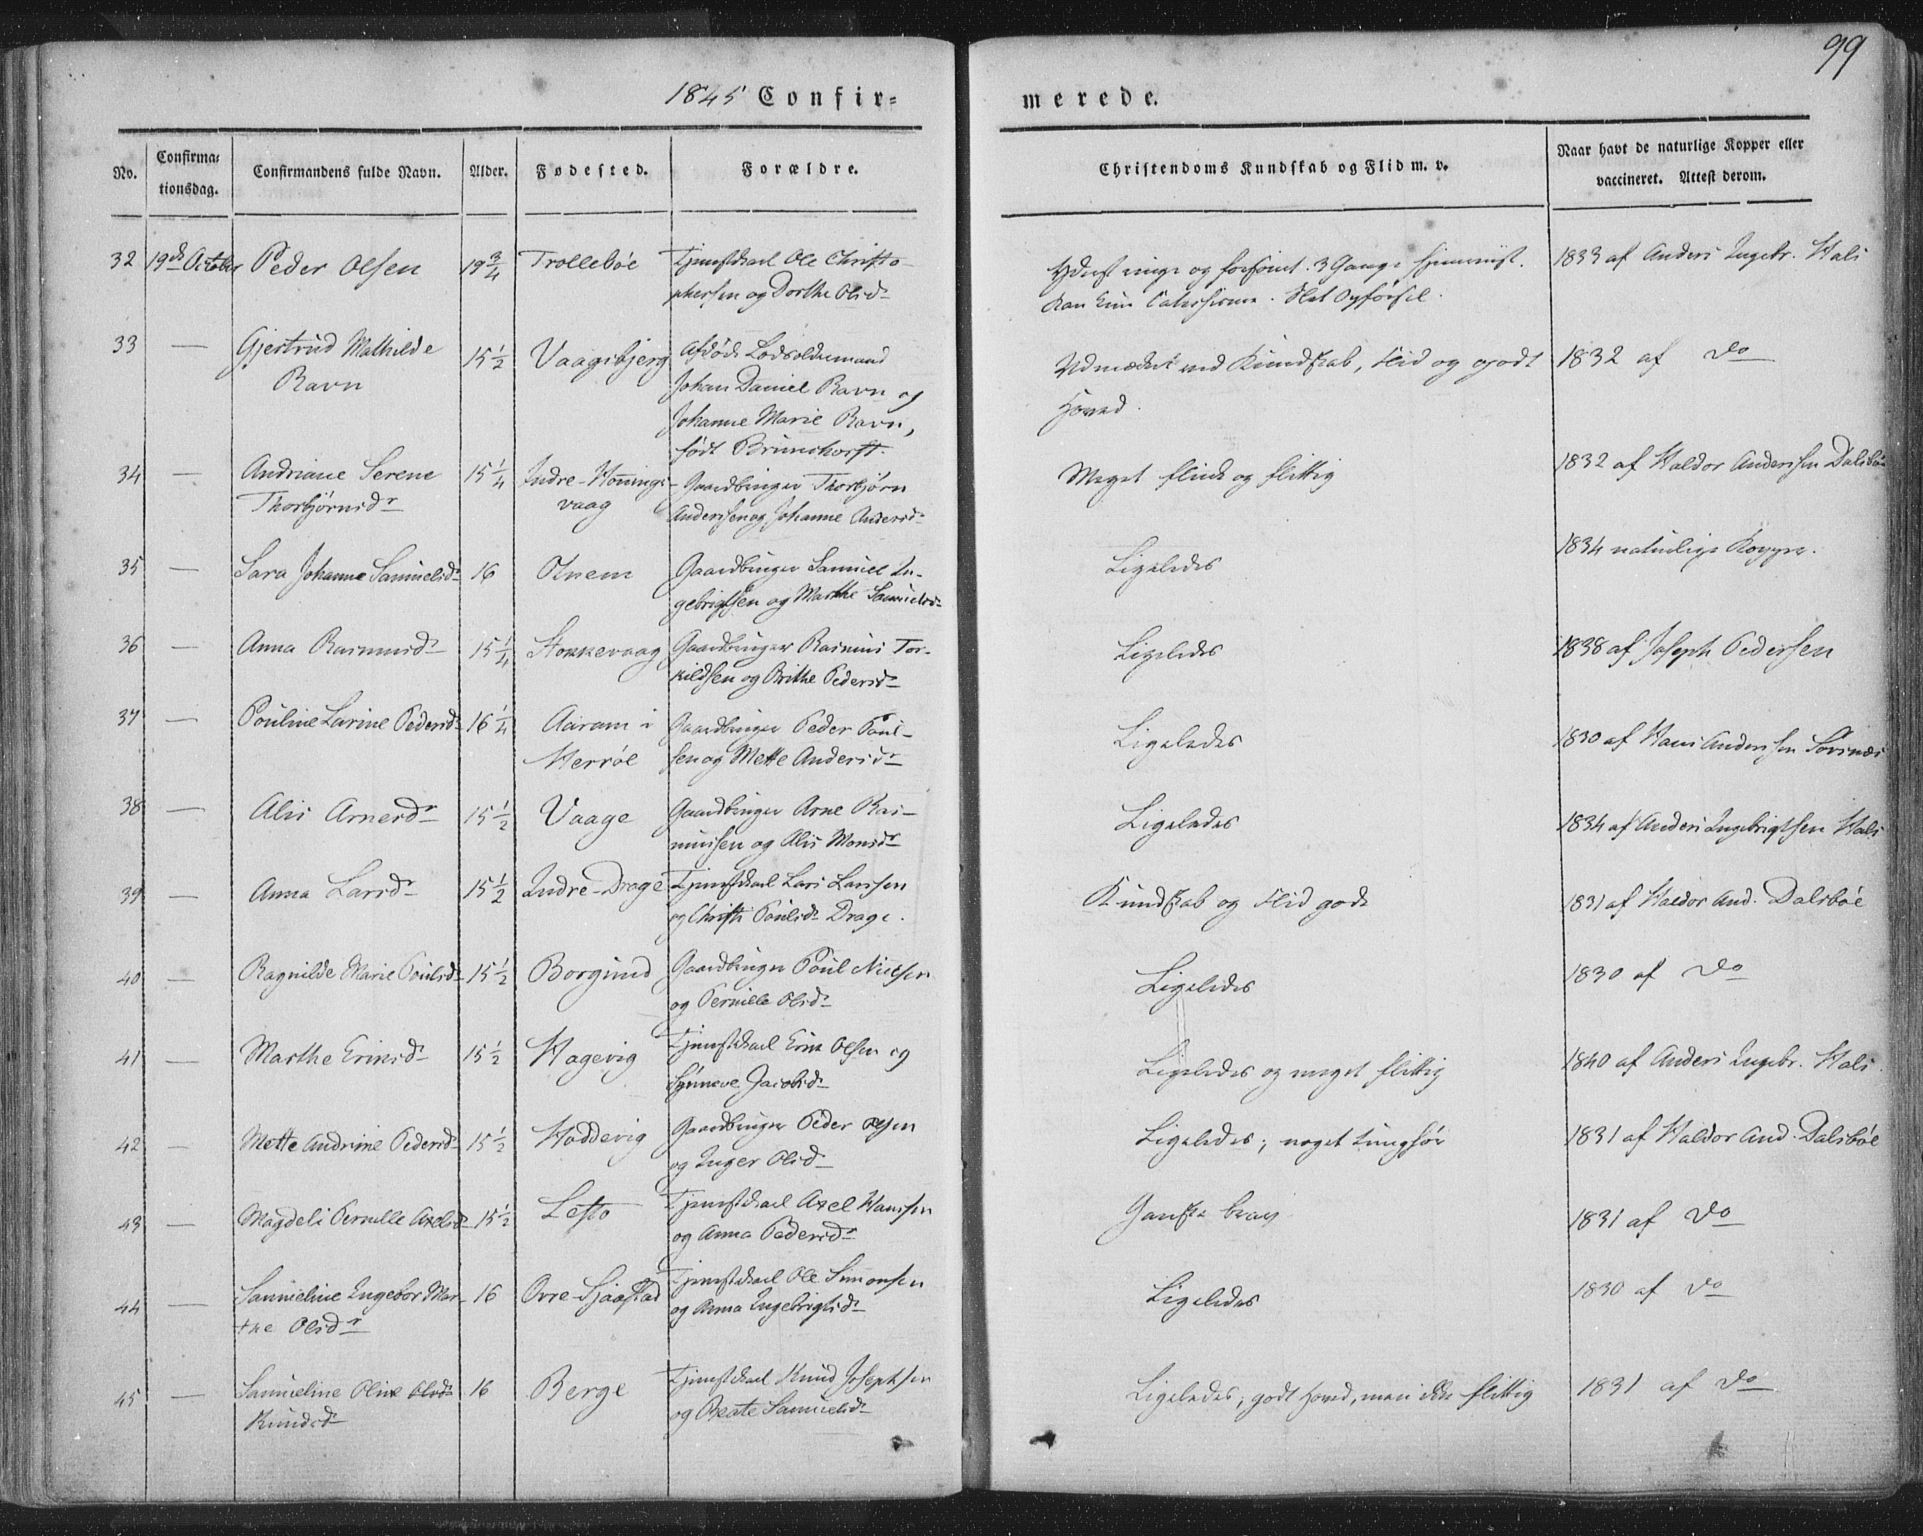 99
1845 Confir=
merede.
No. Confirma= tionsdag. Confirmandens fulde Navn. Alder. Fødested. Forældre. Christendoms Kundskab og Flid m. v. Naar havt de naturlige Kopper eller vaccineret. Attest derom.
32 19de October Peder Olsen 19 3/4 Trollebøe Tjenestekarl Ole Christo-
phersen og Dorthe Olsdr
Yderst ringe og forsømt. 3 Gange hjemviist.
Kan kun Catechismen. Slet Opførsel.
1833 af Anders Ingebr. Hals
33 — Gjertrud Mathilde
Ravn
15 1/2 Vaagsbjerg Afdøde Lodsoldermand
Johan Daniel Ravn og
Johanne Marie Ravn,
født Brunchorst.
Udmærket ved Kundskab, Flid og godt
Hoved.
1832 af do
34 — Andriane Serene
Thorbjørnsdr
15 1/4 Indre-Honnings-
vaag
Gaardbruger Thorbjørn
Anderssen og Johanne Andersdr
Meget flink og flittig
1832 af Haldor Anderssen Dalsbøe
35 — Sara Johanne Samuelsdr 16 Otnem Gaardbruger Samuel In-
gebrigtsen og Marthe Samuelsdr
Ligeledes
1834 naturlige Kopper.
36 — Anna Rasmusdr 15 1/4 Stokkevaag Gaardbruger Rasmus Tor-
kildsen og Brithe Pedersdr
Ligeledes
1838 af Joseph Pedersen
37 — Pouline Larine Pedersdr 16 1/4 Aaram i
Herrøe
Gaardbruger Peder Poul-
sen og Mette Andersdr
Ligeledes
1830 af Hans Anderssen Sørsnæs
38 — Alis Arnesdr 15 1/2 Vaage Gaardbruger Arne Ras-
mussen og Alis Monsdr
Ligeledes
1834 af Anders Ingebrigtsen Hals
39 — Anna Larsdr 15 1/2 Indre-Drage Tjenestekarl Lars Larssen
og Christi Poulsdr Drage.
Kundskab og Flid gode
1831 af Haldor And. Dalsbøe
40 — Ragnilde Marie Poulsdr 15 1/2 Borgund Gaardbruger Poul Nielsen
og Pernille Olsdr
Ligeledes
1830 af do
41 — Marthe Eriksdr 15 1/2 Hagevig Tjenestekarl Erik Olsen og
Synneve Jacobsdr
Ligeledes og meget flittig
1840 af Anders Ingebr. Hals.
42 — Mette Andrine Pedersdr 15 1/2 Hoddevig Gaardbruger Peder
og Inger Olsdr
Ligeledes; noget tunghør
1831 af Haldor And. Dalsbøe
43 — Magdeli Pernille Axelsdr 15 1/2 Lesto Tjenestekarl Axel Hanssen
og Anna Pedersdr
Ganske brav
1831 af do
44 — Samueline Ingebor Mar-
the Olsdr
16 Øvre-Sjaastad Tjenestekarl Ole Simonsen
og Anna Ingebrigtsdr
Ligeledes
1830 af do
45 — Samueline Oline Olsdr
Knudsdr
16 Berge Tjenestekarl Knud Josephsen
og Beate Samuelsdr
Ligeledes; godt Hoved, men ikke flittig
1831 af do